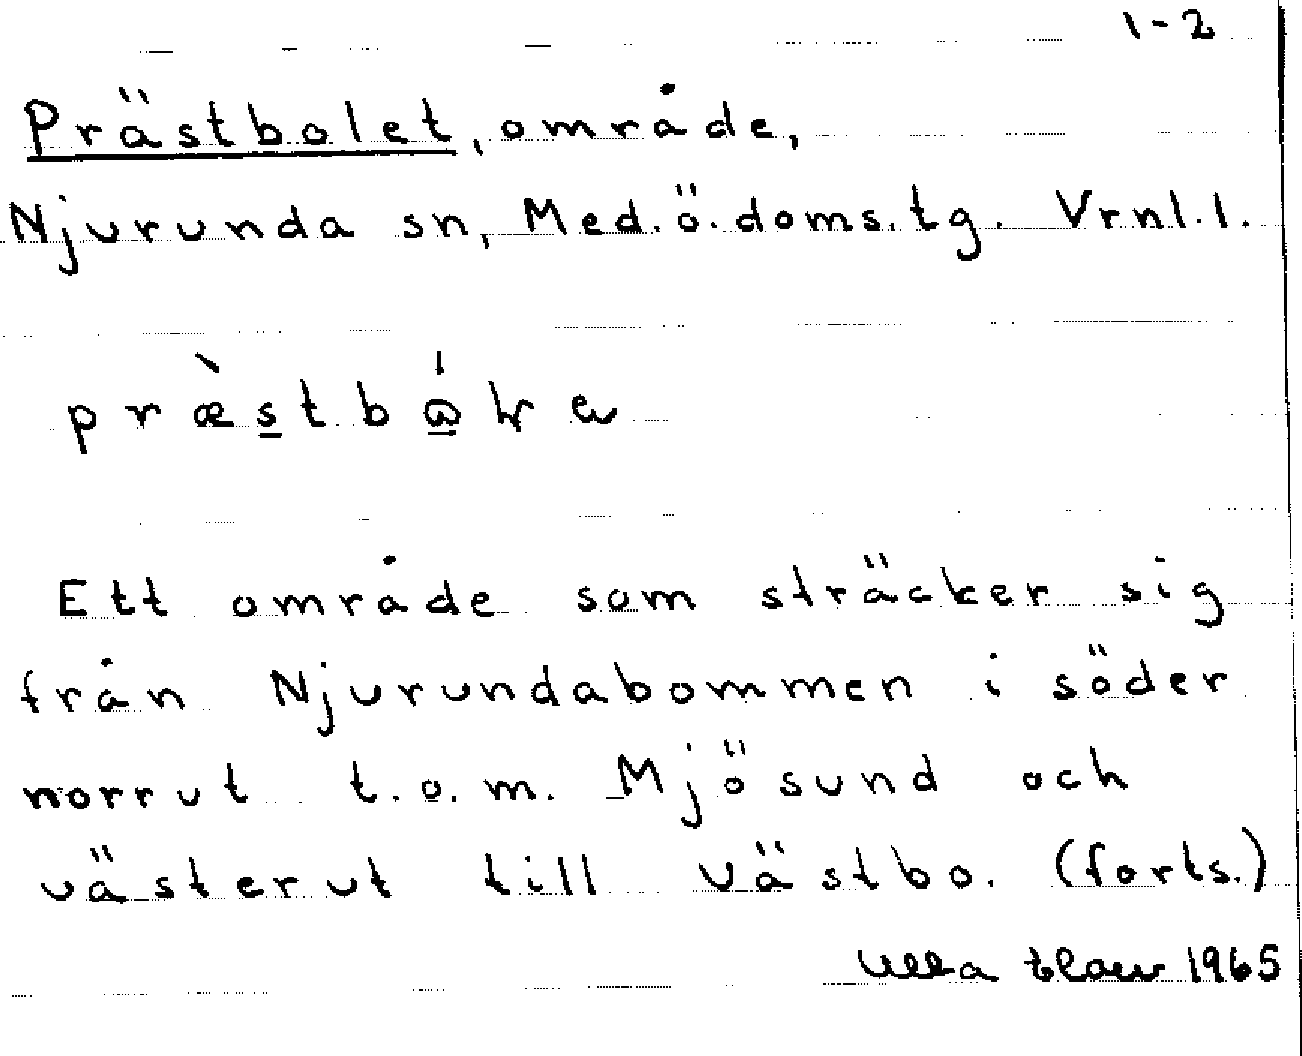 1-2
Prästbolet, område,
Njurunda sn, Med.ö.doms.tg. Vrnl.l.
Ett område som sträcker sig
från Njurundabommen i söder
norrut t.o.m. Mjösund och
västerut till Västbo. (forts.)
Ulla 1965